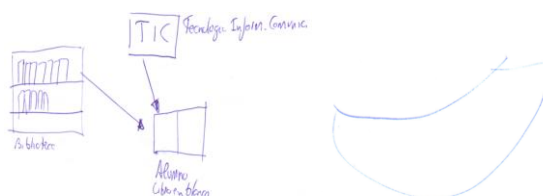 TIC
Tecnología Inform. Comunic.
Biblioteca
Alumno